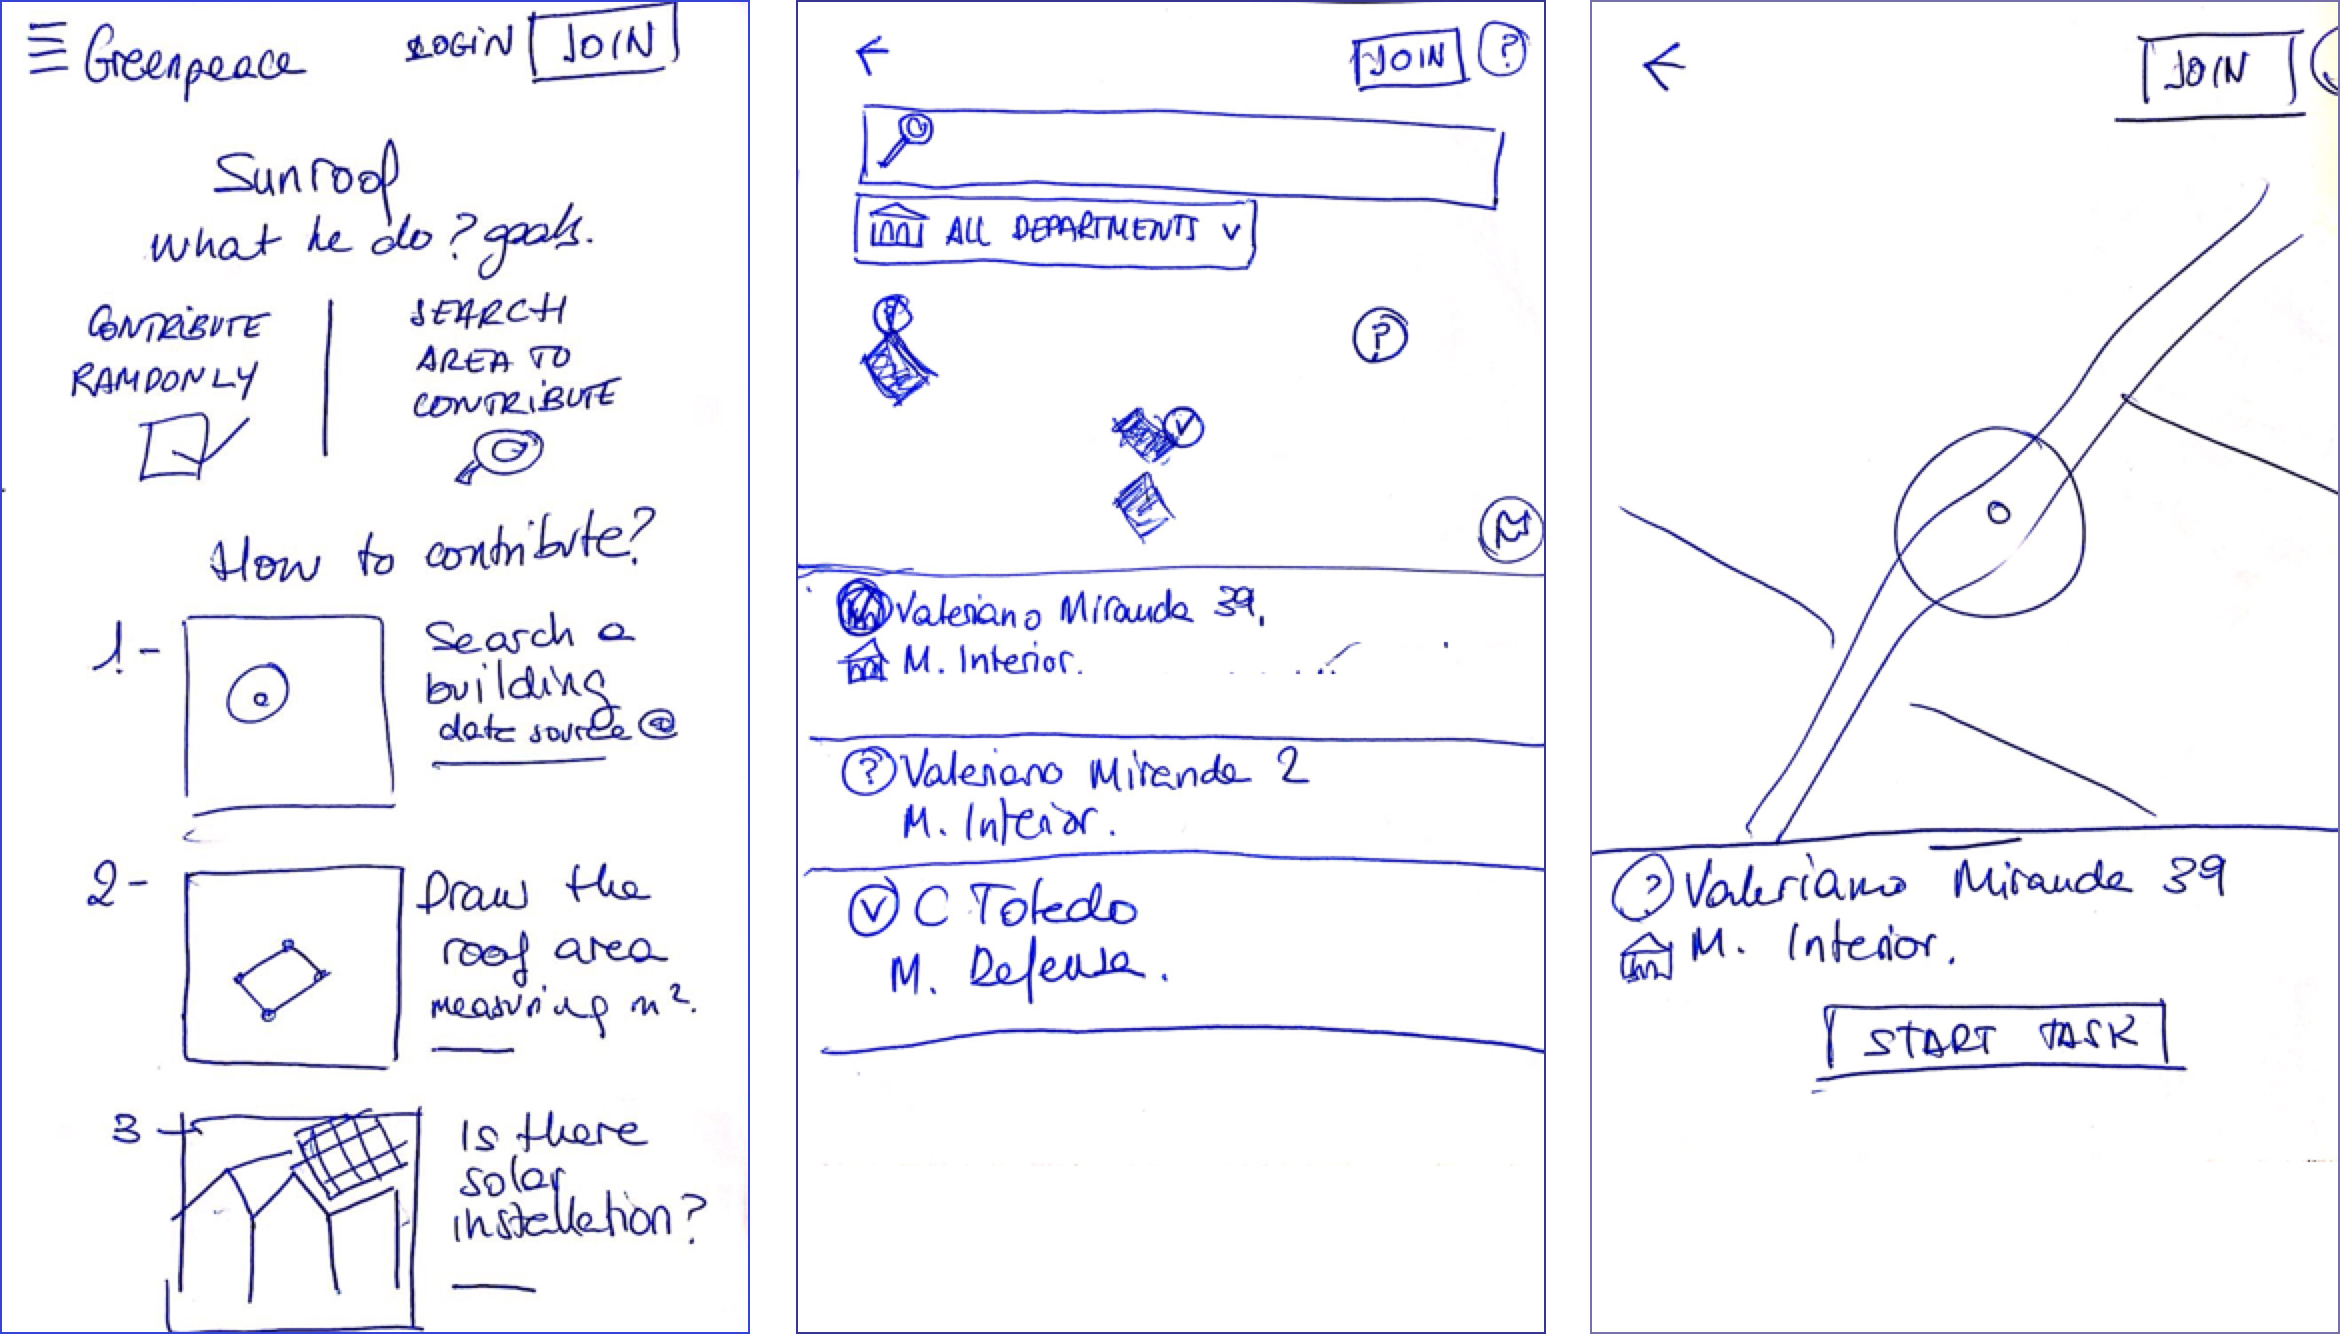 Greenpeace LOGIN JOIN
Sunroof
what he do? goals.
CONTRIBUTE
RAMDONLY
SEARCH
AREA TO
CONTRIBUTE
How to contribute?
1-
Search a
building
date source
2-
Draw the
roof area
measuring m².
3
Is there
solar
installation?
← JOIN ?
ALL DEPARTMENTS v
?
Valeriano Miranda 39.
M. Interior.
? Valeriano Miranda 2
M. Interior.
V C Toledo
M. Defensa.
← JOIN
? Valeriano Miranda 39
M. Interior.
START TASK